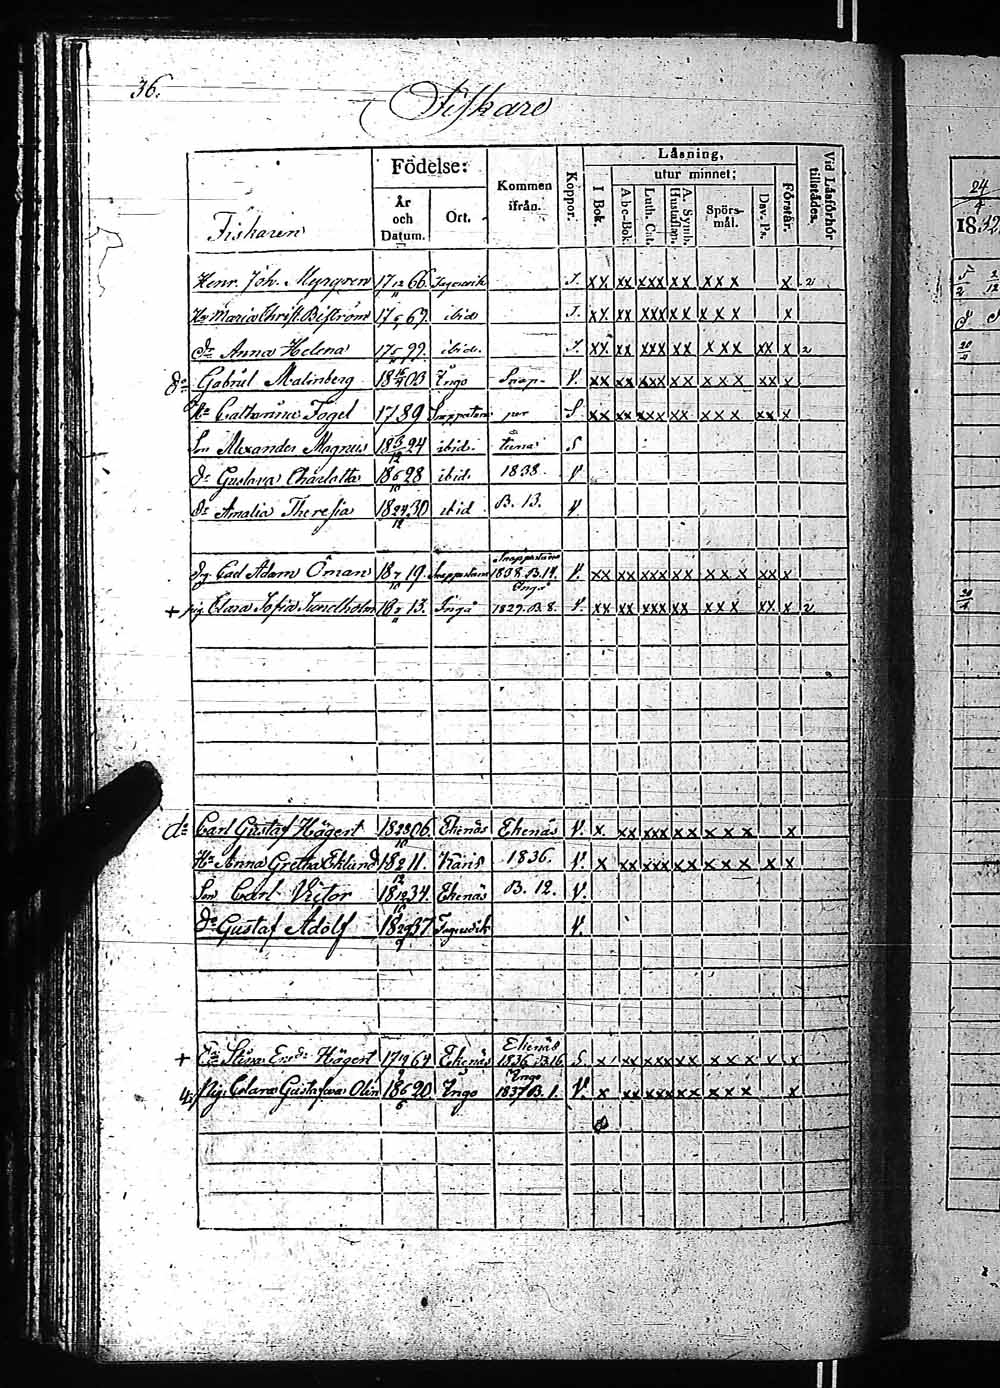 36.
Fiskare
Fiskaren
Födelse:
År och Datum.
Ort.
Kommen ifrån.
Koppor.
Läsning,
I Bok.
utur minnet;
Abc-Bok.
Luth. Cat.
A. Symb. Hustaflan.
Spörsmål.
Dav. Ps.
Förstår.
Vid Läsförhör tillstädes.
Henr. Joh. 17 12 66 J. xx xx xxx xx xxx x 2
Hu Maria Christ. Biström 17 69. ibid J. xx xx xxx xx xxx x
dr Anna Helena 17 99. ibid. J. xx xx xxx xx xxx xx x 2
do Gabriel Malmberg 18 03 Ingo V. xx xx xxx xx xxx xx x
Hu Catharina Fogel 1789 S xx xx xxx xx xxx xx x
Son Alexander Magnus 18 3/12 24 ibid. S
dr Gustava Charlotta 18 6/10 28 ibid. 1838 V
dr Amalia Theresia 18 24/12 30 ibid B. 13. V
Snappertuna
Drg. Carl Adam Öman 18 7/10 19. Snappertuna 1838. B. 14. V. xx xx xxx xx xxx xx x
Ingå
+ pig. Clara Sofia Lundholm 18 13. Ingå 1829. B. 8. V. xx xx xxx xx xxx xx x 2
do Carl Gustaf Hägert 18 28/10 06 Ekenäs Ekenäs V. x xx xxx xx xxx x
Hu Anna Gretha Eklund 18 2/12 11. Karis 1836. V. x xx xxx xx xxx x x
Son Carl Victor 18 12/10 34. Ekenäs B. 12. V.
do Gustaf Adolf 18 29/9 37 V.
Ekenäs
+ Stina Ersdr Hägert 17 19 64 Ekenäs 1836. B. 16. S x xx xxx xx xxx x x
Ingo
Pig. Clara Gustafva Olin 18 6/6 20 Ingo 1837 B. 1. V. x xx xxx xx xxx x
24/4
1832